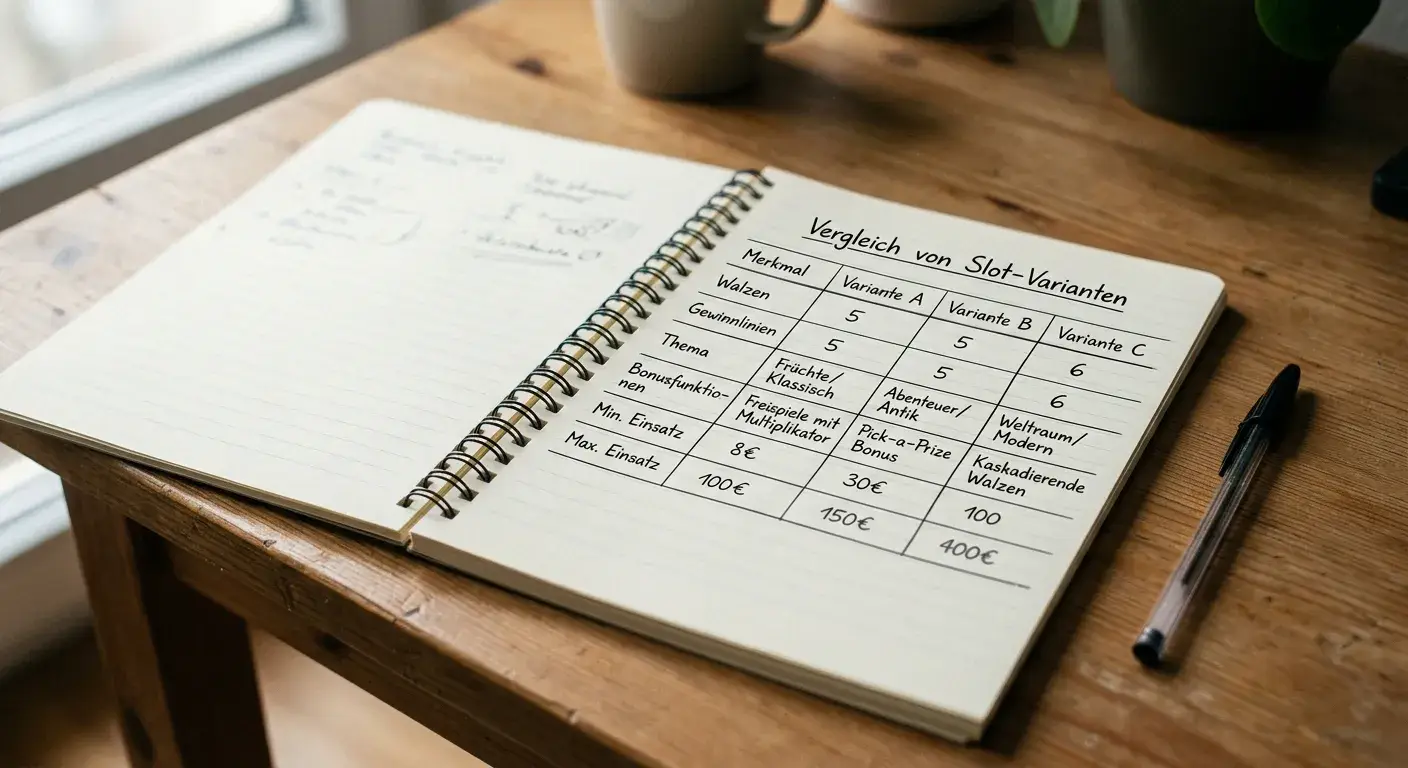 Vergleich von Slot-Varianten
Merkmal Variante A Variante B Variante C
Walzen 5 5 6
Gewinnlinien 5 5 6
Thema Früchte/ Abenteuer/ Weltraum/
Klassisch Antik Modern
Bonusfunktio- Freispiele mit Pick-a-Prize Kaskadierende
nen Multiplikator Bonus Walzen
Min. Einsatz 8€ 30€ 100
Max. Einsatz 100€ 150€ 400€